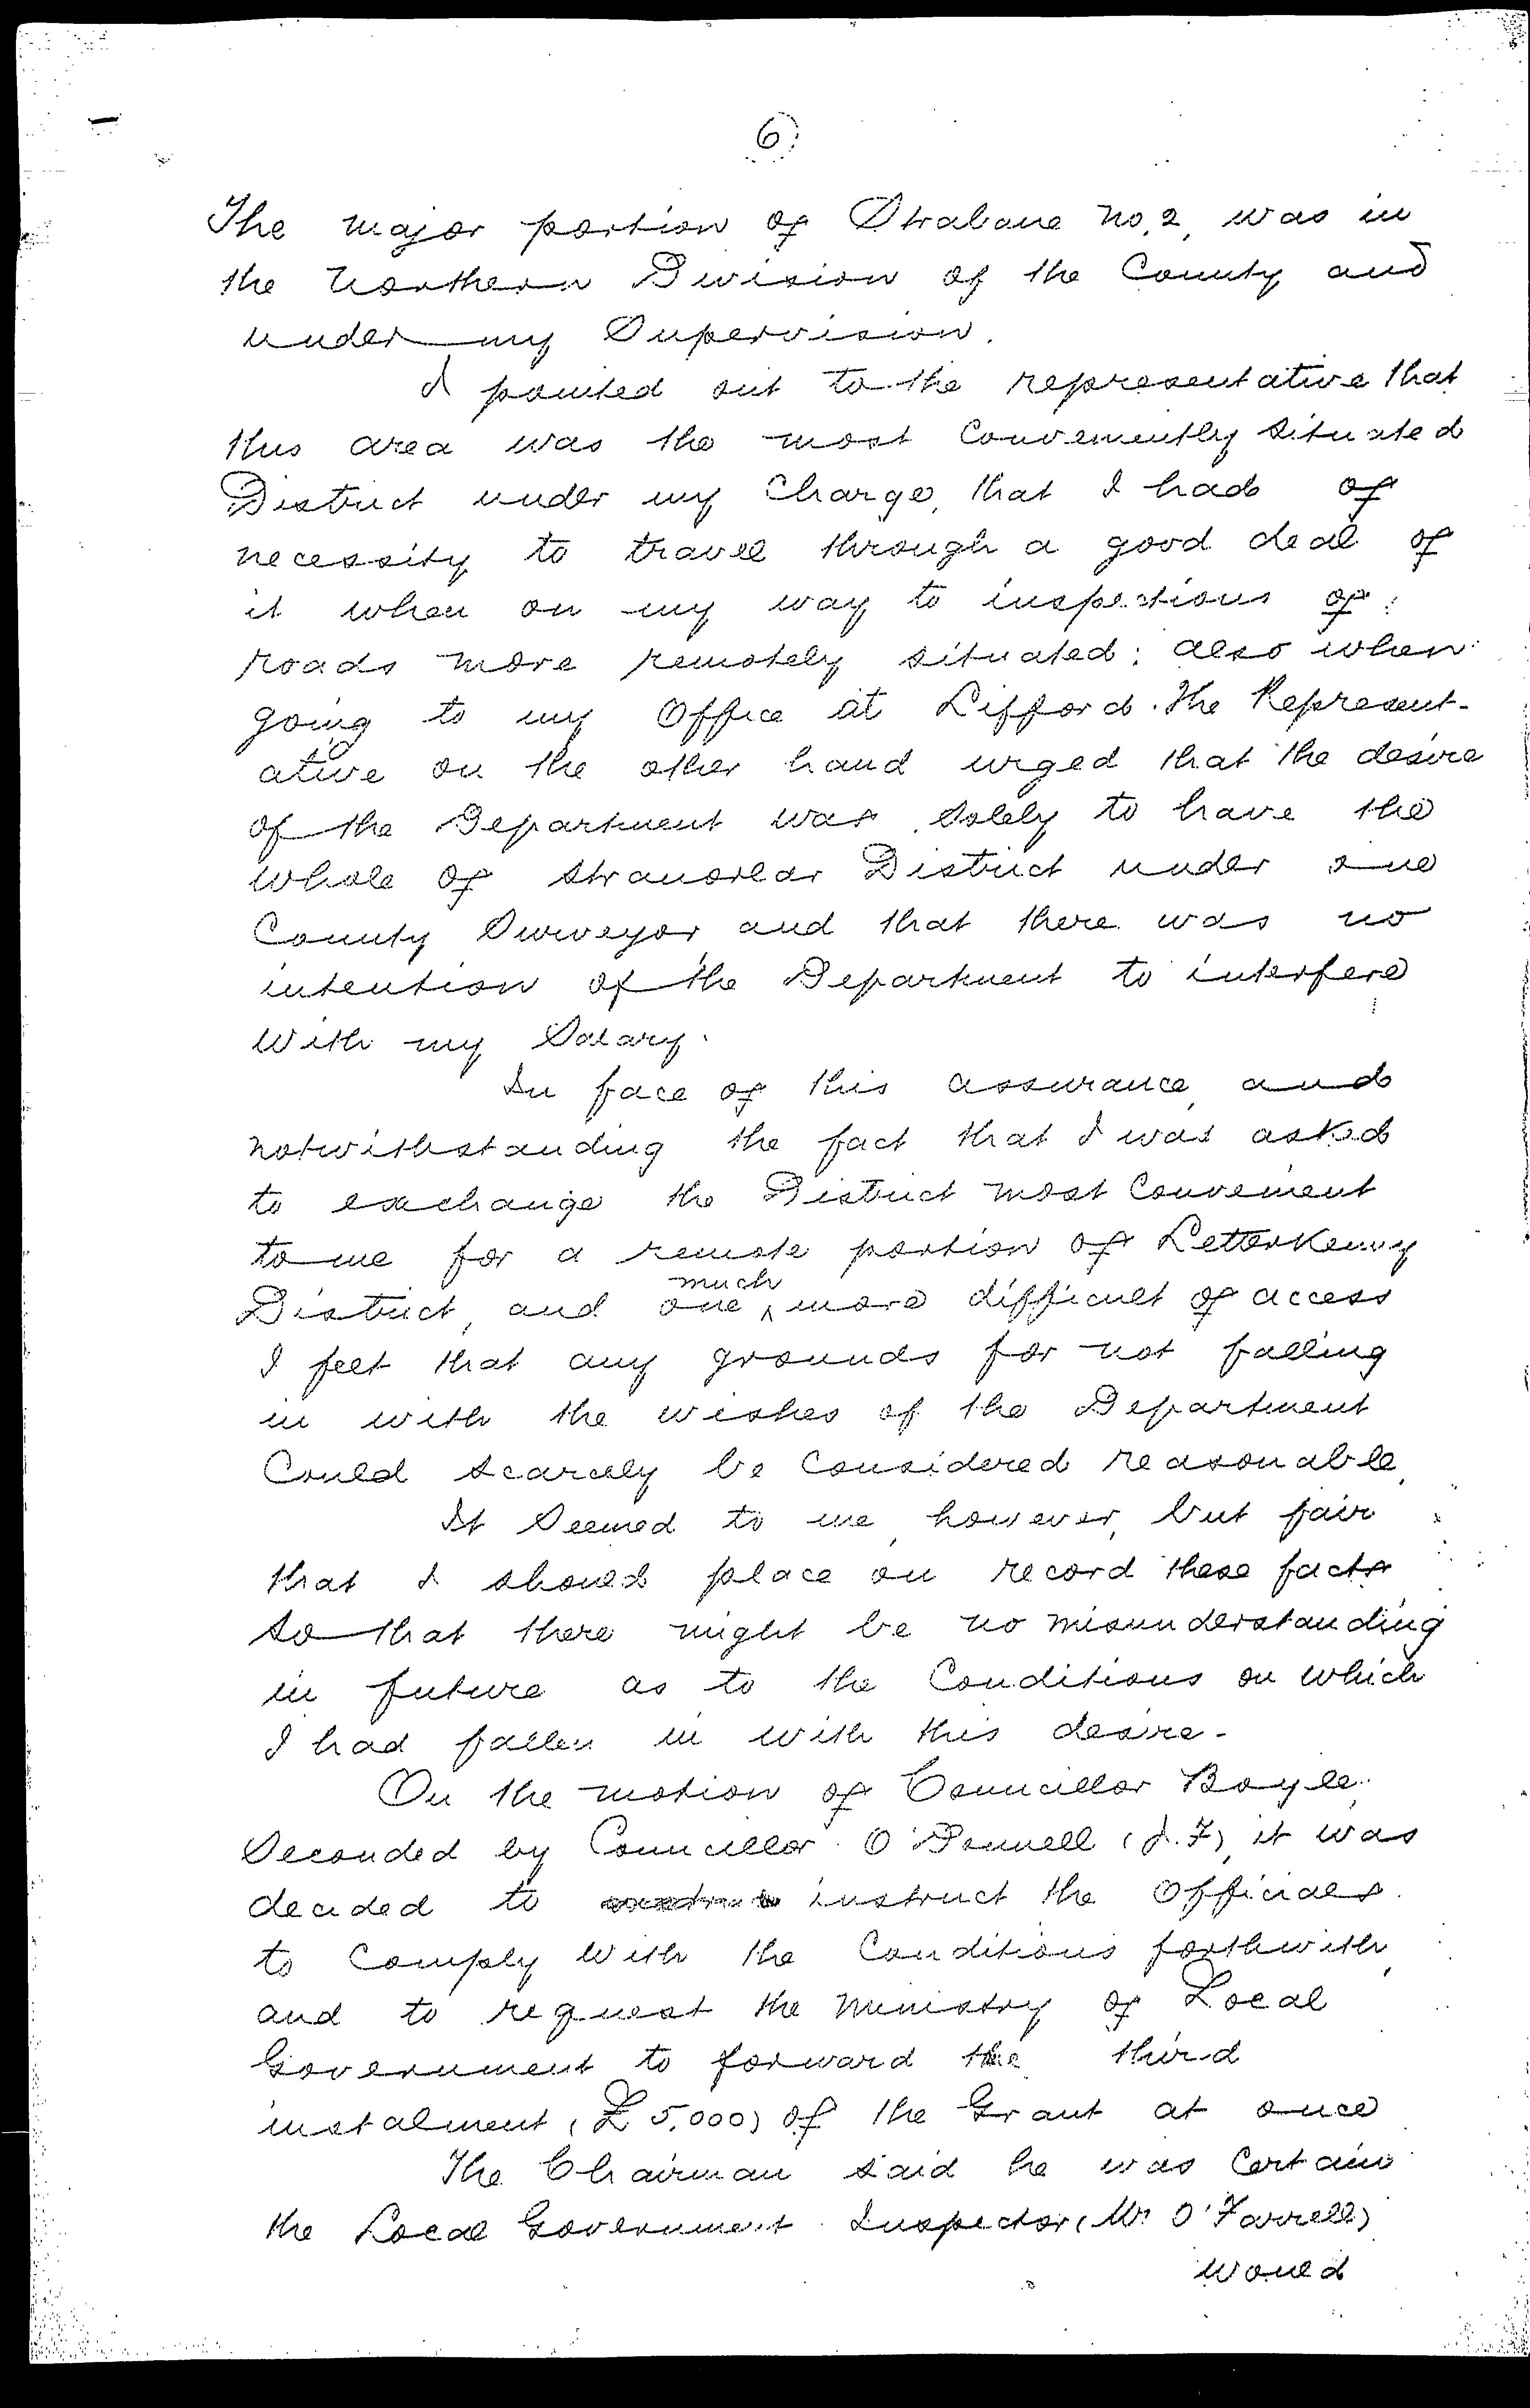 6)
The major portion of Strabane No. 2, was in
the Northern Division of the County and
under my Supervision.
I pointed out to the representative that
this area was the most Conveniently situated
District under my Charge, that I had of
necessity to travel through a good deal of
it when on my way to inspections of
roads more remotely situated; also when
going to my Office at Lifford. The Represent-
ative on the other hand urged that the desire
of the Department was solely to have the
whole of Stranorlar District under one
County Surveyor, and that there was no
intention of the Department to interfere
with my Salary.
In face of this assurance, and
notwithstanding the fact that I was asked
to exchange the District most Convenient
to me for a remote portion of Letterkenny
District, and one much more difficult of access
I felt that any grounds for not falling
in with the wishes of the Department
Could scarcely be Considered reasonable.
It Seemed to me, however, but fair
that I should place on record these facts
so that there might be no misunderstanding
in future as to the Conditions on which
I had fallen in with this desire.
On the motion of Councillor Boyle,
Seconded by Councillor O'Donnell (J.F), it was
decided to instruct the Officials
to Comply with the Conditions forthwith,
and to request the Ministry of Local
Government to forward the third
instalment (£5,000) of the Grant at once
The Chairman said he was Certain
the Local Government Inspector (Mr O'Farrell)
would